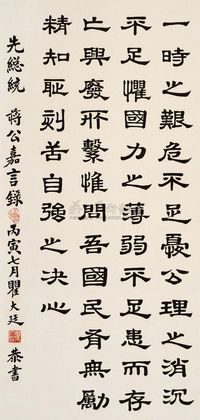 一時之艱危不足憂公理之消沉
不足懼國力之薄弱不足患而存
亡興廢所繫惟問吾國民有無勵
精知恥刻苦自強之決心
先總統 蔣公嘉言錄 丙寅七月瞿大廷 恭書